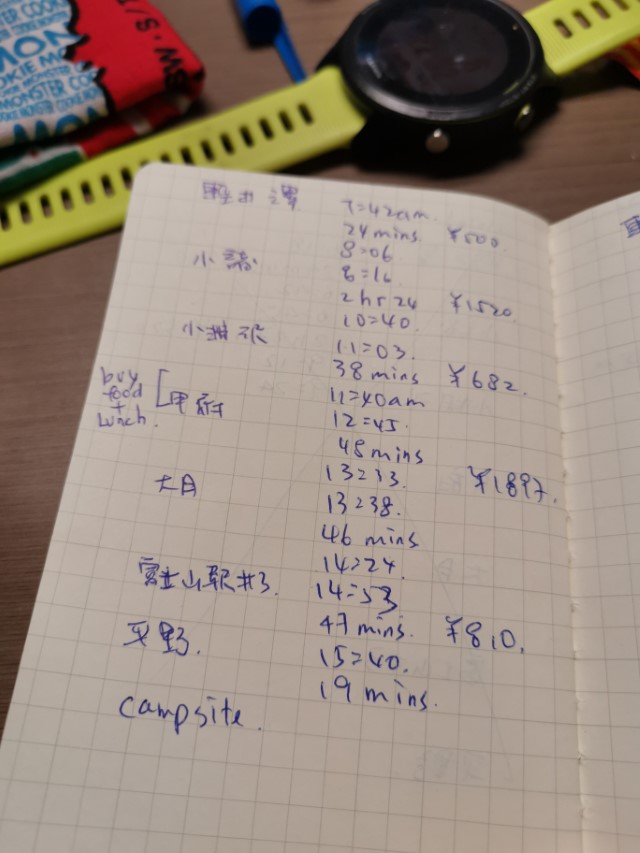 MONSTER COOKIE
SW.S/T
軽井澤 7:42am.
24 mins. ¥500
小諸 8:06
8:16
2hr 24 ¥1520
10:40.
小淵沢 11:03.
38 mins ¥682.
buy food + lunch. [甲府 11:40am
12:45
48 mins
大月 13:33. ¥1897.
13:38.
46 mins
14:24.
富士山駅#3. 14:53
47 mins. ¥810.
平野. 15:40.
19 mins.
campsite.